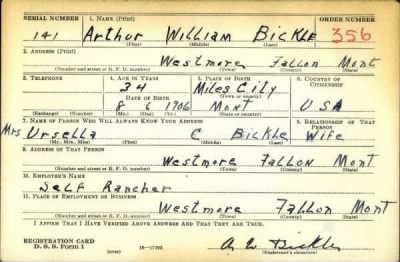 SERIAL NUMBER 1. NAME (Print) ORDER NUMBER
141 Arthur William Bickle 356
(First) (Middle) (Last)
2. ADDRESS (Print)
Westmore Fallon Mont
(Number and street or R. F. D. number) (Town) (County) (State)
3. TELEPHONE 4. AGE IN YEARS 5. PLACE OF BIRTH 6. COUNTRY OF CITIZENSHIP
34 Miles City
DATE OF BIRTH (Town or county)
8 6 1906 Mont USA
(Exchange) (Number) (Mo.) (Day) (Yr.) (State or country)
7. NAME OF PERSON WHO WILL ALWAYS KNOW YOUR ADDRESS 8. RELATIONSHIP OF THAT PERSON
Mrs Ursella C Bickle Wife
(Mr., Mrs., Miss) (First) (Middle) (Last)
9. ADDRESS OF THAT PERSON
Westmore Fallon Mont
(Number and street or R. F. D. number) (Town) (County) (State)
10. EMPLOYER'S NAME
Self Rancher
11. PLACE OF EMPLOYMENT OR BUSINESS
Westmore Fallon Mont
(Number and street or R. F. D. number) (Town) (County) (State)
I AFFIRM THAT I HAVE VERIFIED ABOVE ANSWERS AND THAT THEY ARE TRUE.
REGISTRATION CARD
D. S. S. Form 1 (over) A W Bickle
(Registrant's signature)